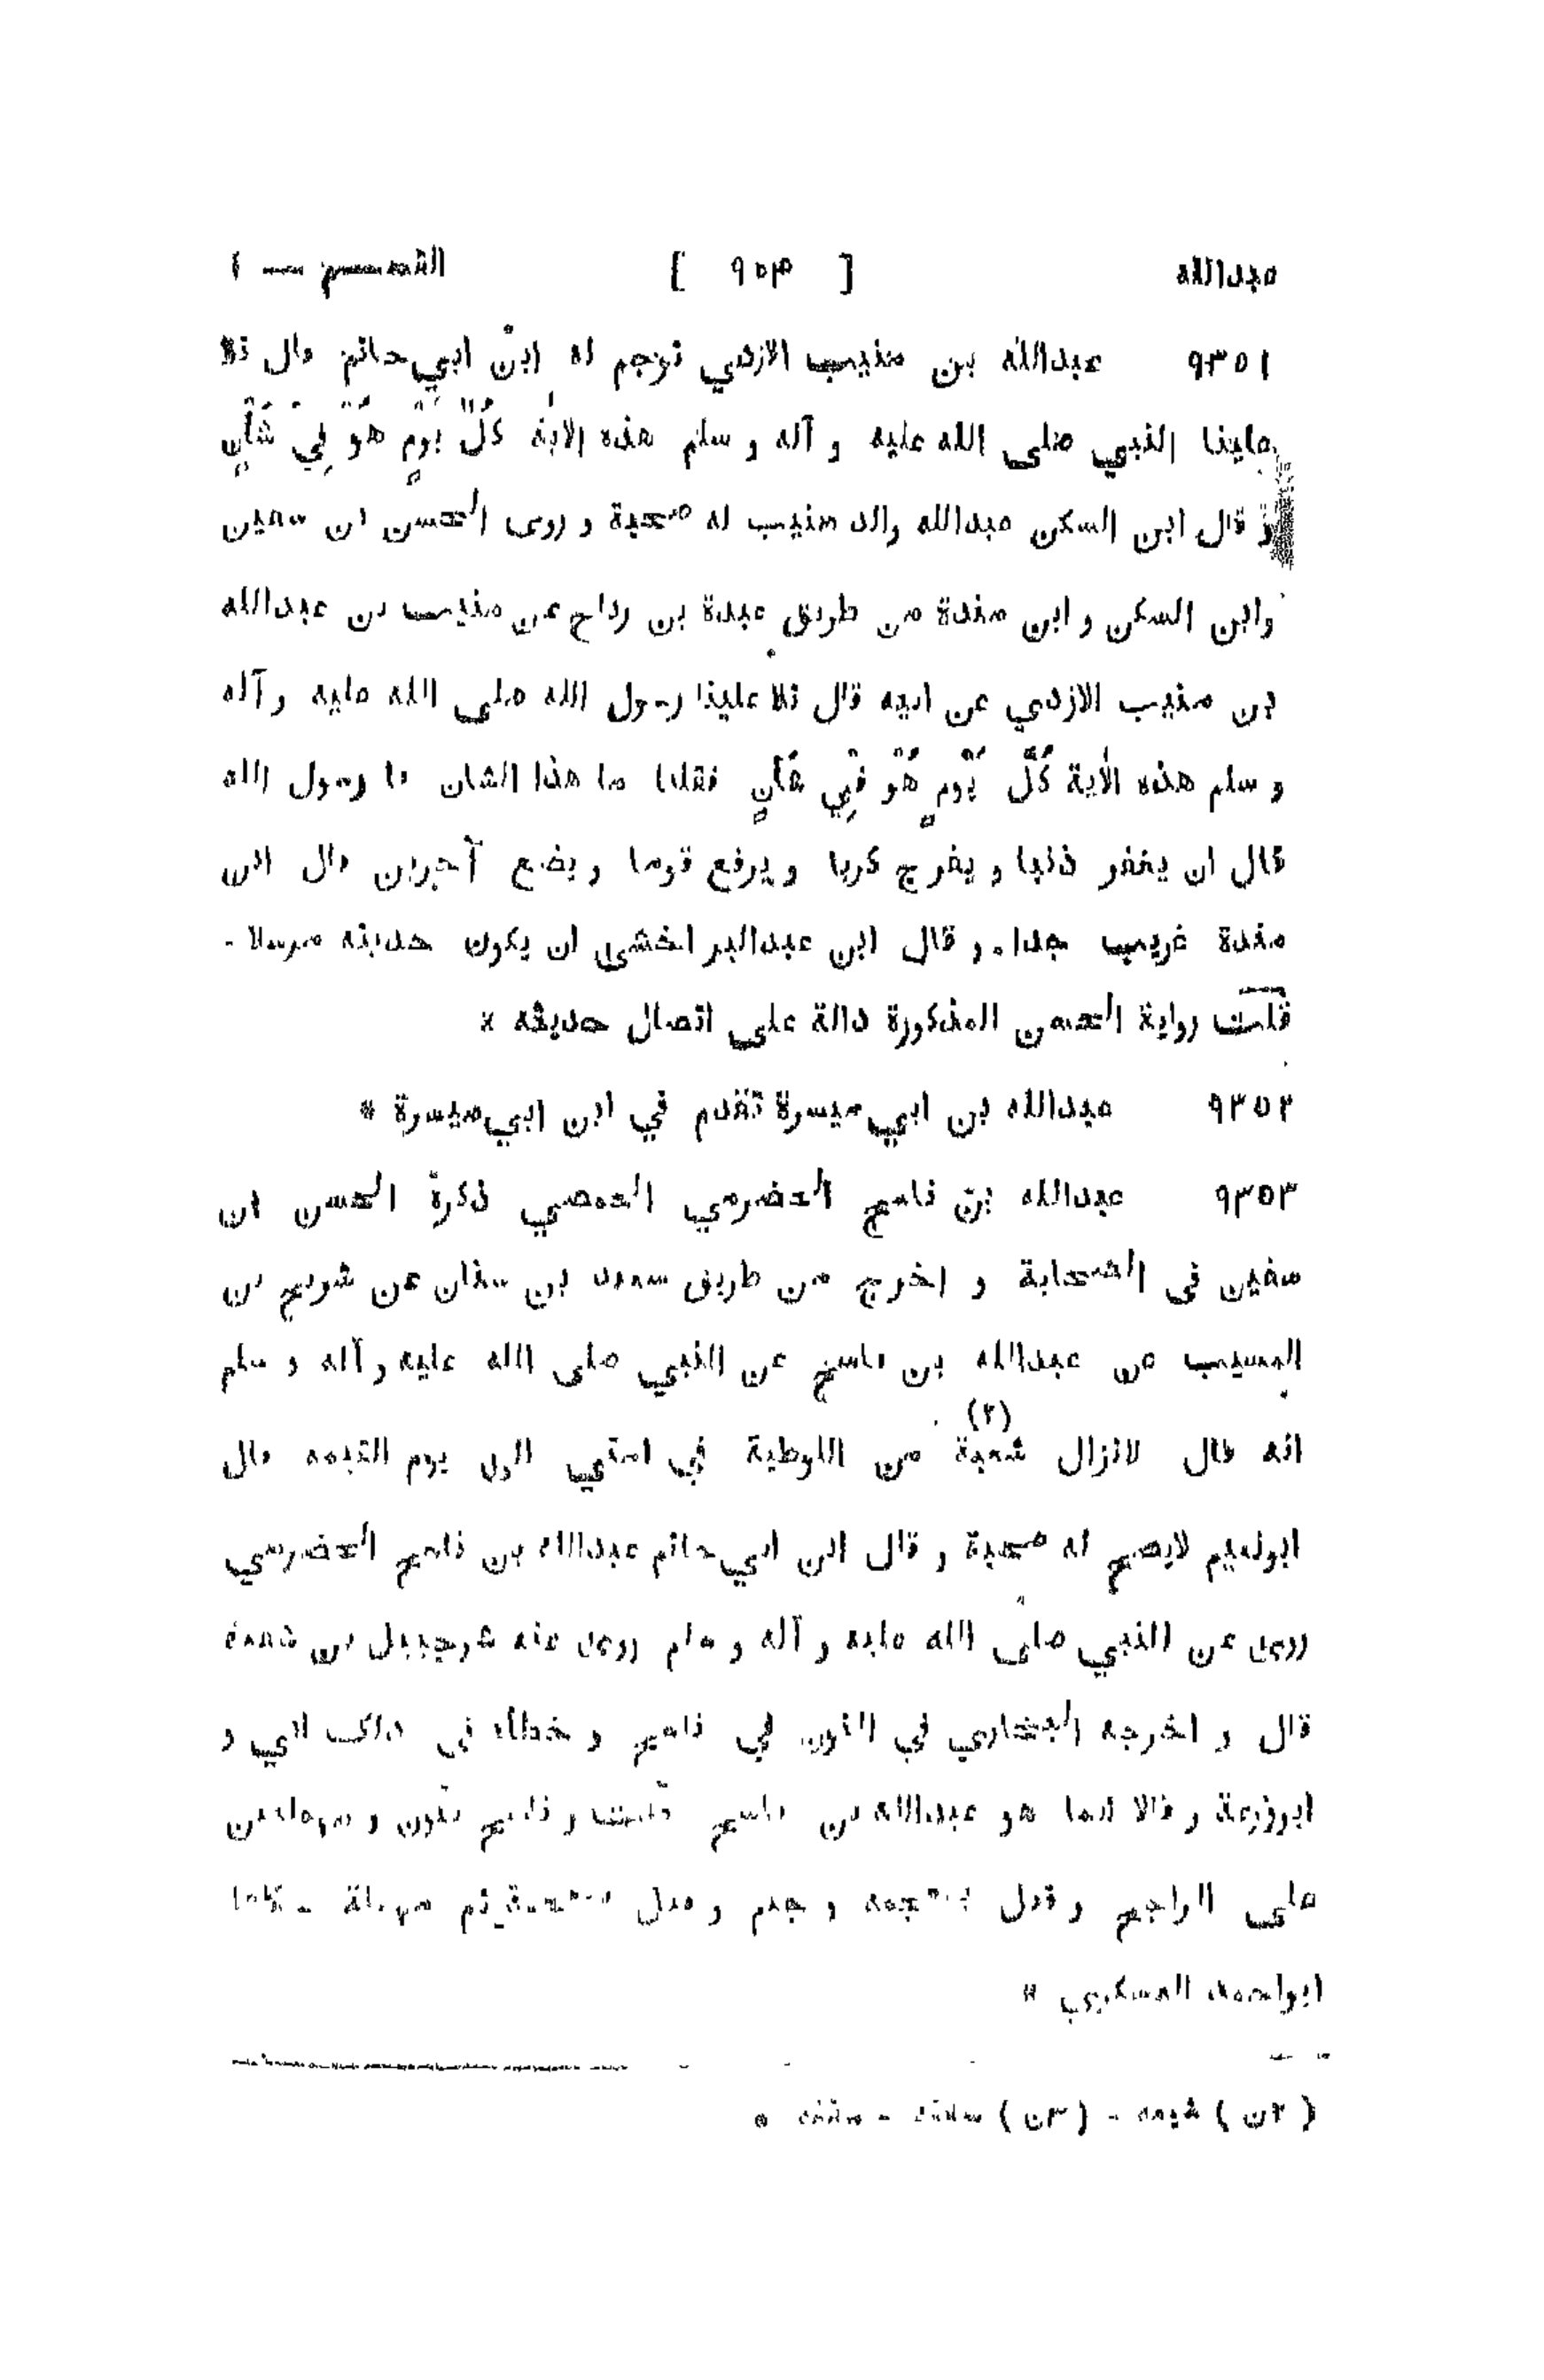 عبدالله [ ٩٥٣ ] القســـم — ١
٩٣٥١ عبدالله بن منيب الازدي ترجم له ابن ابي حاتم قال تلا
علينا النبي صلى الله عليه و آله و سلم هذه الاية كُلَّ يَوْمٍ هُوَ فِيْ شَأْنٍ
و قال ابن السكن عبدالله والد منيب له صحبة و روى الحسن بن سفين
وابن السكن و ابن مندة من طريق عبدة بن رباح عن منيب بن عبدالله
بن منيب الازدي عن ابيه قال تلا علينا رسول الله صلى الله عليه و آله
و سلم هذه الاية كُلَّ يَوْمٍ هُوَ فِيْ شَأْنٍ فقلنا ما هذا الشان يا رسول الله
قال ان يغفر ذنبا و يفرج كربا و يرفع قوما و يضع آخرين قال ابن
مندة غريب جدا. و قال ابن عبدالبر اخشى ان يكون حديثه مرسلا -
قلت رواية الحسن المذكورة دالة على اتصال حديثه *
٩٣٥٢ عبدالله بن ابي ميسرة تقدم في ابن ابي ميسرة *
٩٣٥٣ عبدالله بن ناسح الحضرمي الحمصي ذكرة الحسن بن
سفين فى الصحابة و اخرج من طريق سعيد بن سنان عن شريح بن
المسيب عن عبدالله بن ناسح عن النبي صلى الله عليه و آله و سلم
انه قال لاتزال شعبة (٢) من اللوطية في امتي الى يوم القيمه قال
ابونعيم لايصح له صحبة و قال ابن ابي حاتم عبدالله بن ناسح الحضرمي
روى عن النبي صلى الله عليه و آله و سلم روى عنه شرحبيل بن شفعة
قال و اخرجه البخاري في النون في ناسح و خطاه في ذلك ابي و
ابوزرعة و قالا انما هو عبدالله بن ناسح قلت و ناسح بنون و مهملتين
على الراجح و قيل بمعجمه و جيم و قيل بمعجمة ثم مهملة
ابواحمد العسكري *
( ٢ن ) شيعه - ( ٣ن )